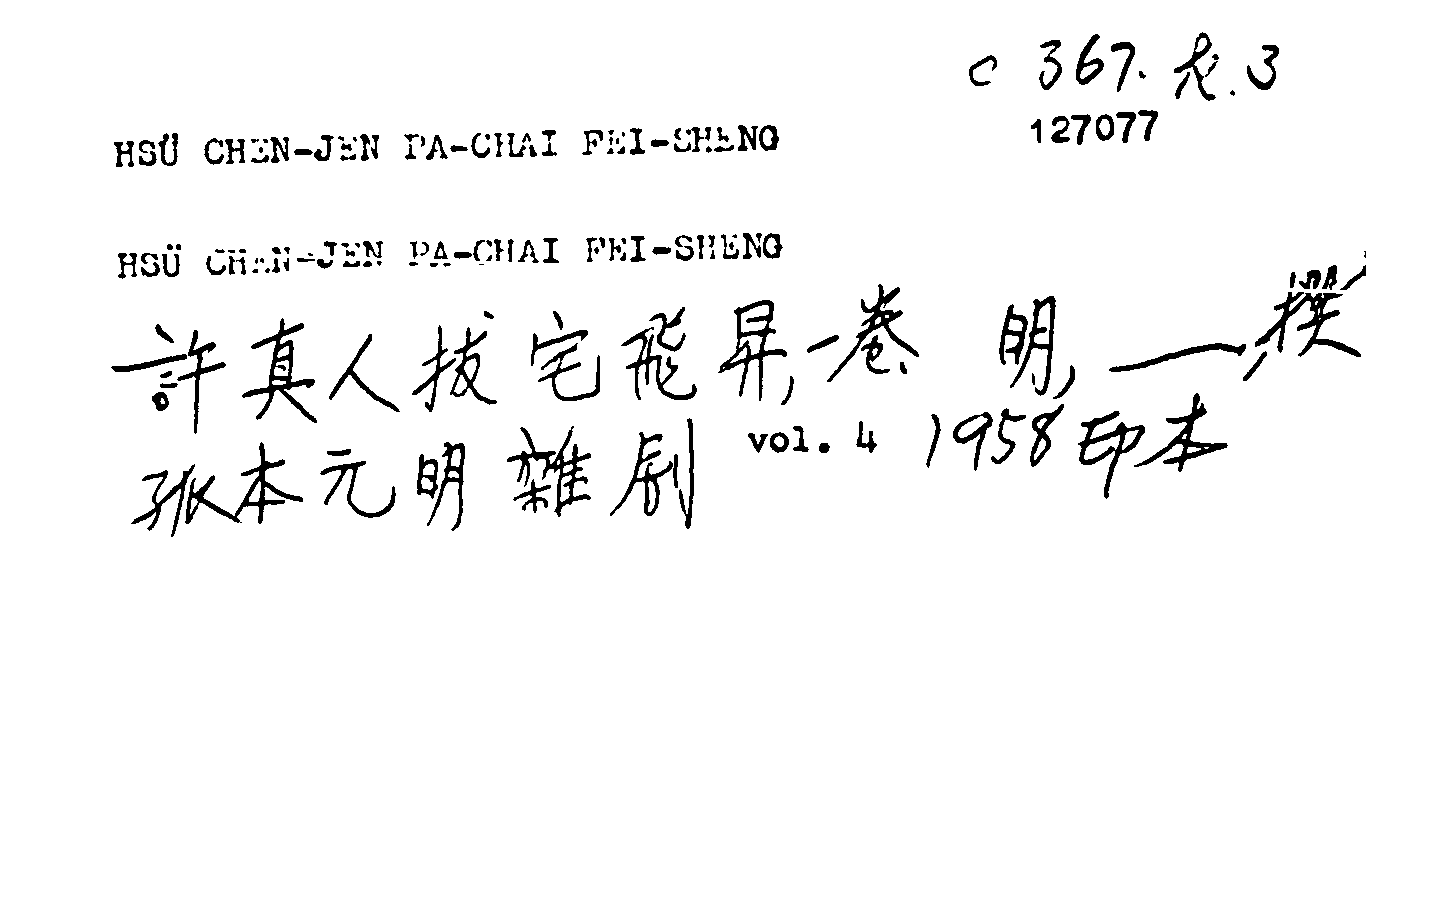 C 367. R. 3
127077
HSÜ CHEN-JEN PA-CHAI FEI-SHENG
HSÜ CHEN-JEN PA-CHAI FEI-SHENG
許真人拔宅飛昇, 一卷 明, —— 撰
孤本元明雜劇 vol. 4 1958印本